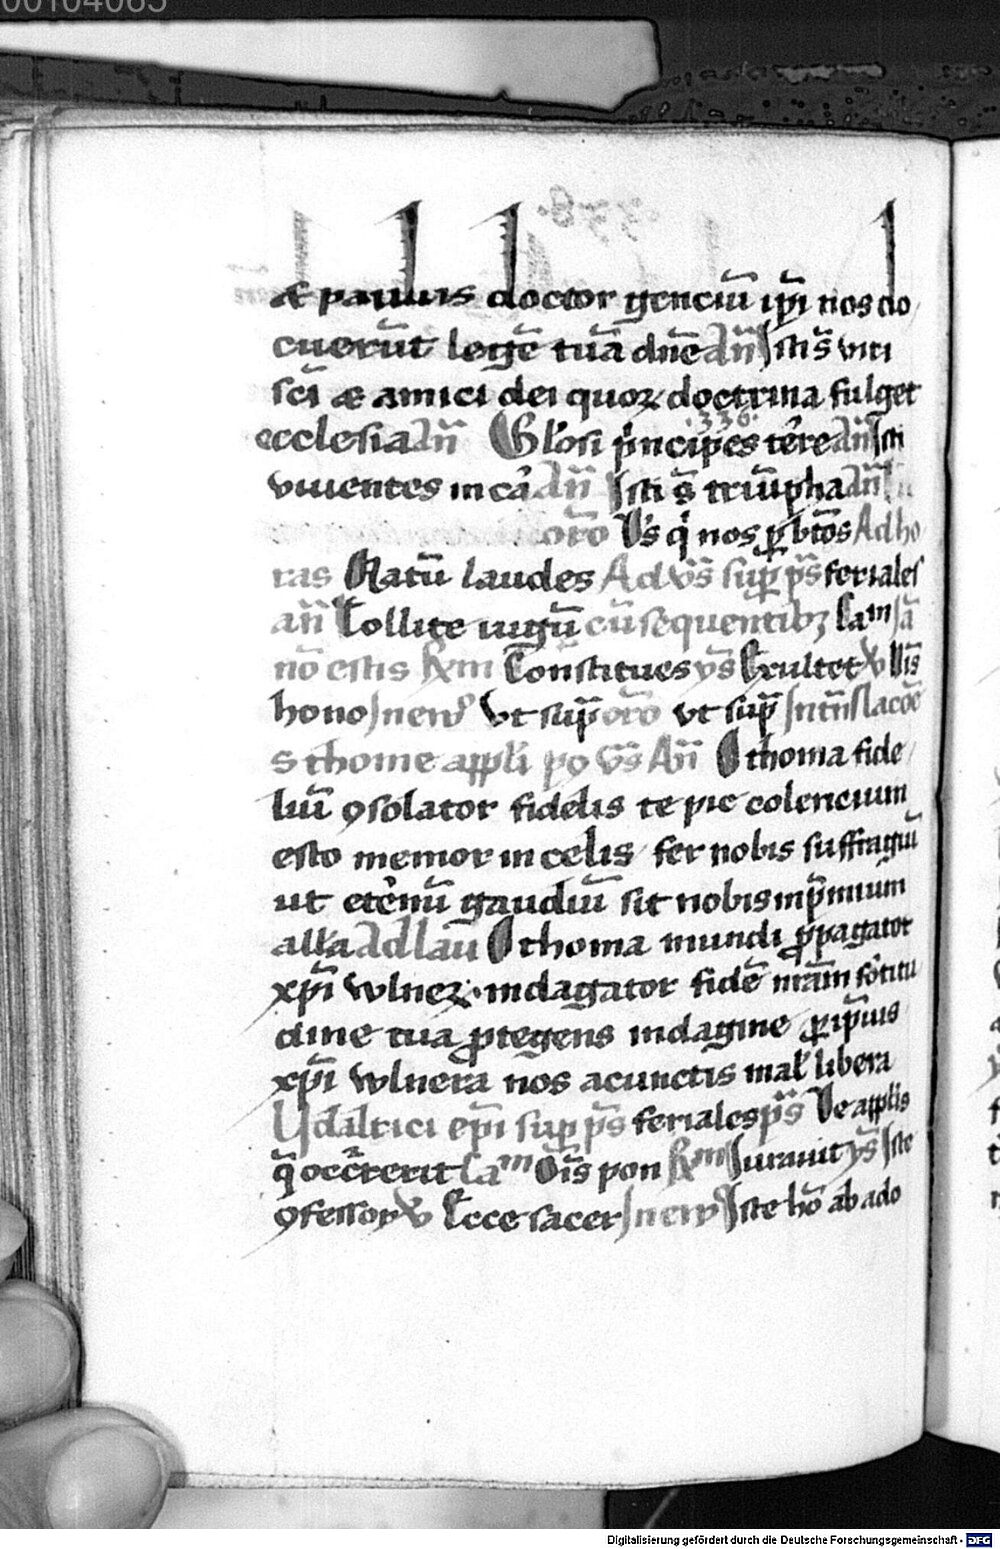 00104065
et paulus doctor genciu̅ ip̅i nos do
cueru̅t lege̅ tua̅ dn̅e an̅ Isti s̅ viri
sc̅i et amici dei quoꝝ doctrina fulget
ecclesia an̅ Gl'osi p̅ncipes te̅re an̅ Isti
.336.
viuentes in ca̅ an̅ Isti s̅ triu̅pha an̅
or̅o D̅s q̇ nos ꝑ bt̅os Ad ho
ras Natu̅ laudes Ad vs̅ suꝑ ps̅ feriales
an̅ Tollite iugu̅ cu̅ sequentibꝫ Ca^m Ja̅
no̅ estis R̅m Constitues ys̅ Exultet v̅ Nis̅
hono In ew̅ Vt sup̅ or̅o vt sup̅
s thome appl̅i po vs̅ An̅ O thoma fide
liu̅ ꝯsolator fidelis te pie colencium
esto memor in celis / fer nobis suffragiu̅
ut ete̅nu̅ gaudiu̅ sit nobis in p̅mium
all'a Ad lau̅ O thoma mundi ꝓpagator
xp̅i wlneꝝ indagator fide̅ nr̅am fo̅titu
dine tua ꝓtegens indagine ꝓ ip̅ius
xp̅i wlnera nos acunctis mal' libera
Vdalrici ep̅i suꝑ ps̅ feriales ps̅ De appl̅is
q̅ occ̅rrerit Ca^m Oi̅s pon R̅m Iurauit ys̅ Iste
ꝯfessor v̅ Ecce sacer In ew̅ Iste ho̅ ab ado
Digitalisierung gefördert durch die Deutsche Forschungsgemeinschaft - DFG